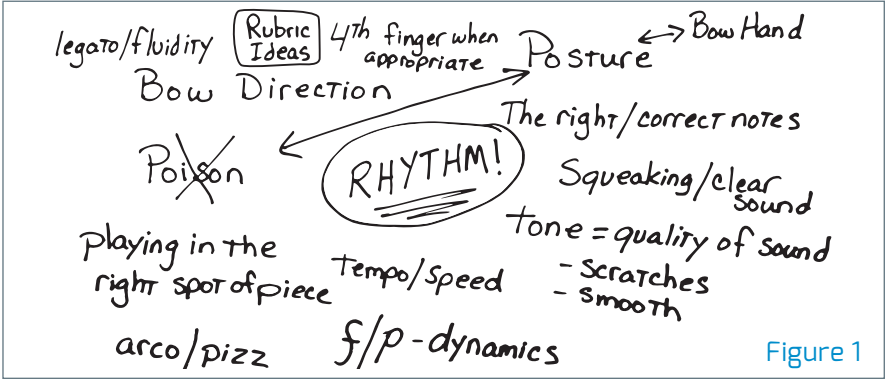 legato/fluidity
Rubric
Ideas
4th finger when
appropriate
Posture
Bow Hand
Bow Direction
The right/correct notes
Poison
RHYTHM!
Squeaking/clear
sound
tone = quality of sound
- scratches
- smooth
playing in the
right spot of piece
tempo/speed
arco/pizz
f/p - dynamics
Figure 1